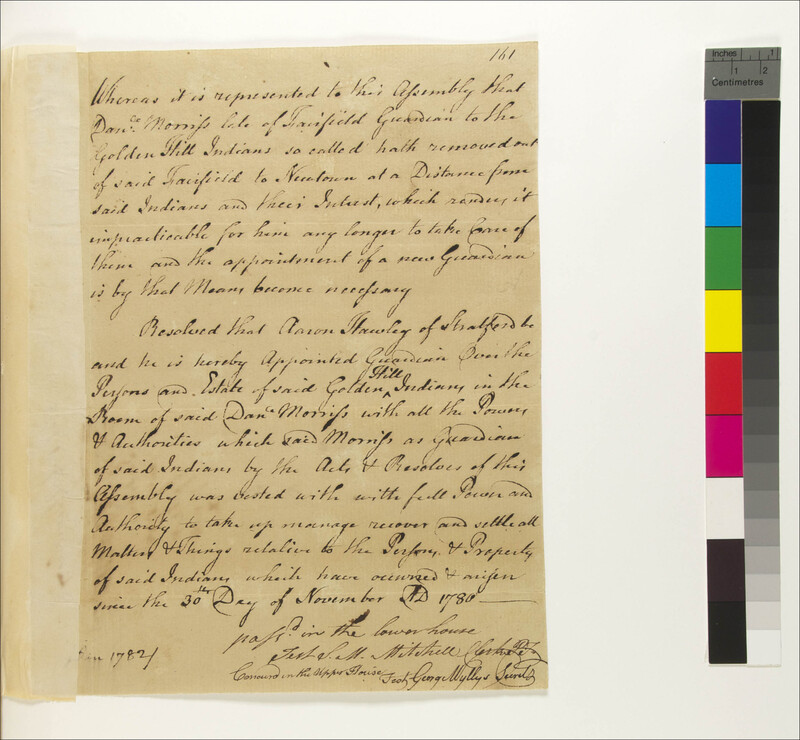 161
Whereas it is represented to this Assembly that
Danl. Morriss late of Fairfield Guardian to the
Golden Hill Indians so called hath removed out
of said Fairfield to Newtown at a Distance from
said Indians and their Interest, which renders it
impracticable for him any longer to take Care of
them and the appointment of a new Guardian
is by that Means become necessary
Resolved that Aaron Hawley of Stratford be
and he is hereby Appointed Guardian Over the
Persons and Estate of said Golden Hill Indians in the
Room of said Danl. Morriss with all the Powers
& Authorities which said Morriss as Guardian
of said Indians by the Acts & Resolves of this
Assembly was vested with with full Power and
Authority to take up manage recover and settle all
Matters & Things relative to the Persons & Property
of said Indians which have occurred & arisen
since the 30th Day of November AD 1780
pass'd in the lower house
Test S. M. Mitchell Clerk
1782
Concurd in the Upper House
Test George Wyllys Secret
Inches 1
1 2
Centimetres